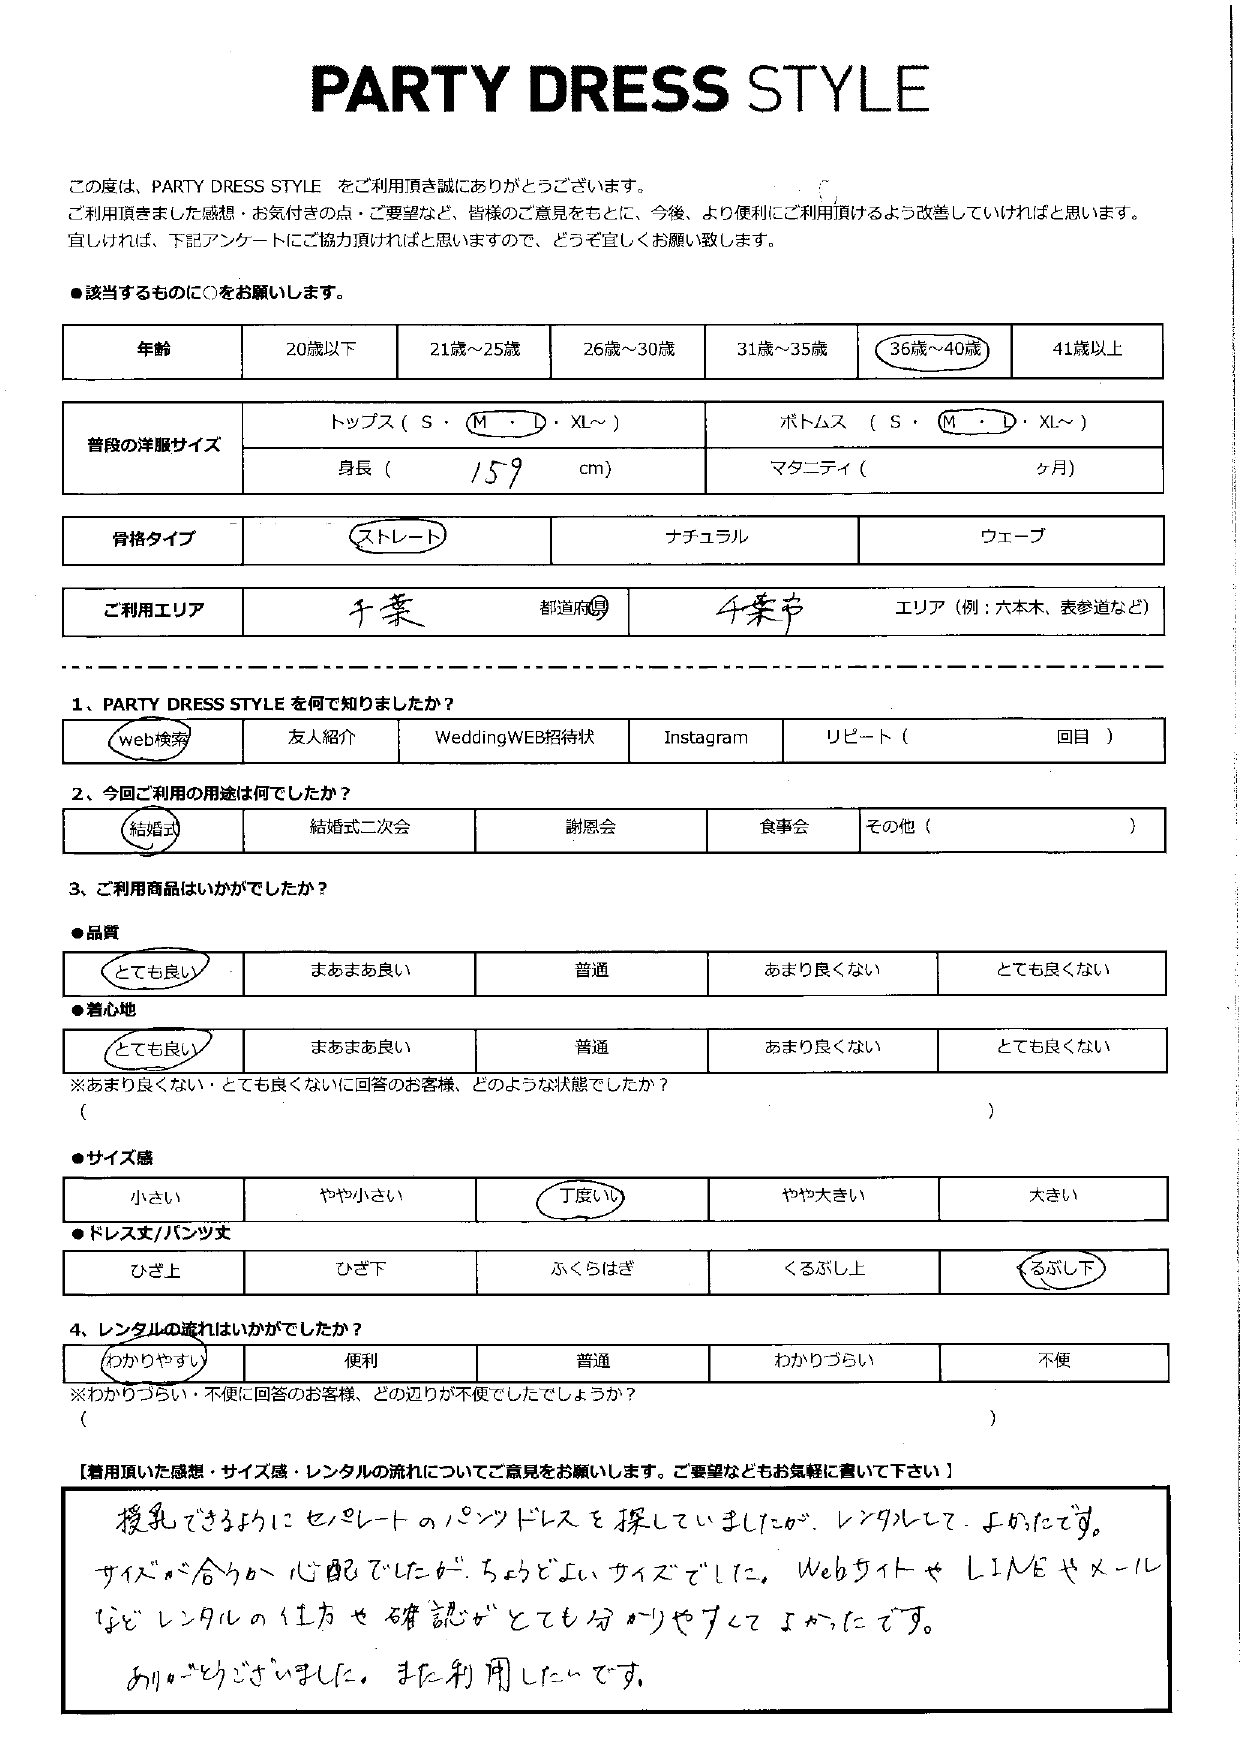 PARTY DRESS STYLE
この度は、PARTY DRESS STYLE をご利用頂き誠にありがとうございます。
ご利用頂きました感想・お気付きの点・ご要望など、皆様のご意見をもとに、今後、より便利にご利用頂けるよう改善していければと思います。
宜しければ、下記アンケートにご協力頂ければと思いますので、どうぞ宜しくお願い致します。
●該当するものに○をお願いします。
年齢 20歳以下 21歳～25歳 26歳～30歳 31歳～35歳 36歳～40歳 41歳以上
普段の洋服サイズ トップス ( S ・ M ・ L ・ XL～ ) ボトムス ( S ・ M ・ L ・ XL～ )
身長 ( 159 cm) マタニティ ( ヶ月)
骨格タイプ ストレート ナチュラル ウェーブ
ご利用エリア 千葉 都道府県 千葉市 エリア（例：六本木、表参道など）
1、PARTY DRESS STYLE を何で知りましたか？
web検索 友人紹介 WeddingWEB招待状 Instagram リピート ( 回目 )
2、今回ご利用の用途は何でしたか？
結婚式 結婚式二次会 謝恩会 食事会 その他 ( )
3、ご利用商品はいかがでしたか？
●品質
とても良い まあまあ良い 普通 あまり良くない とても良くない
●着心地
とても良い まあまあ良い 普通 あまり良くない とても良くない
※あまり良くない・とても良くないに回答のお客様、どのような状態でしたか？
( )
●サイズ感
小さい やや小さい 丁度いい やや大きい 大きい
●ドレス丈/パンツ丈
ひざ上 ひざ下 ふくらはぎ くるぶし上 くるぶし下
4、レンタルの流れはいかがでしたか？
わかりやすい 便利 普通 わかりづらい 不便
※わかりづらい・不便に回答のお客様、どの辺りが不便でしたでしょうか？
( )
【着用頂いた感想・サイズ感・レンタルの流れについてご意見をお願いします。ご要望などもお気軽に書いて下さい 】
授乳できるようにセパレートのパンツドレスを探していましたが、レンタルして、よかったです。
サイズが合うか心配でしたが、ちょうどよいサイズでした。WebサイトやLINEやメール
などレンタルの仕方や確認がとても分かりやすくてよかったです。
ありがとうございました。また利用したいです。